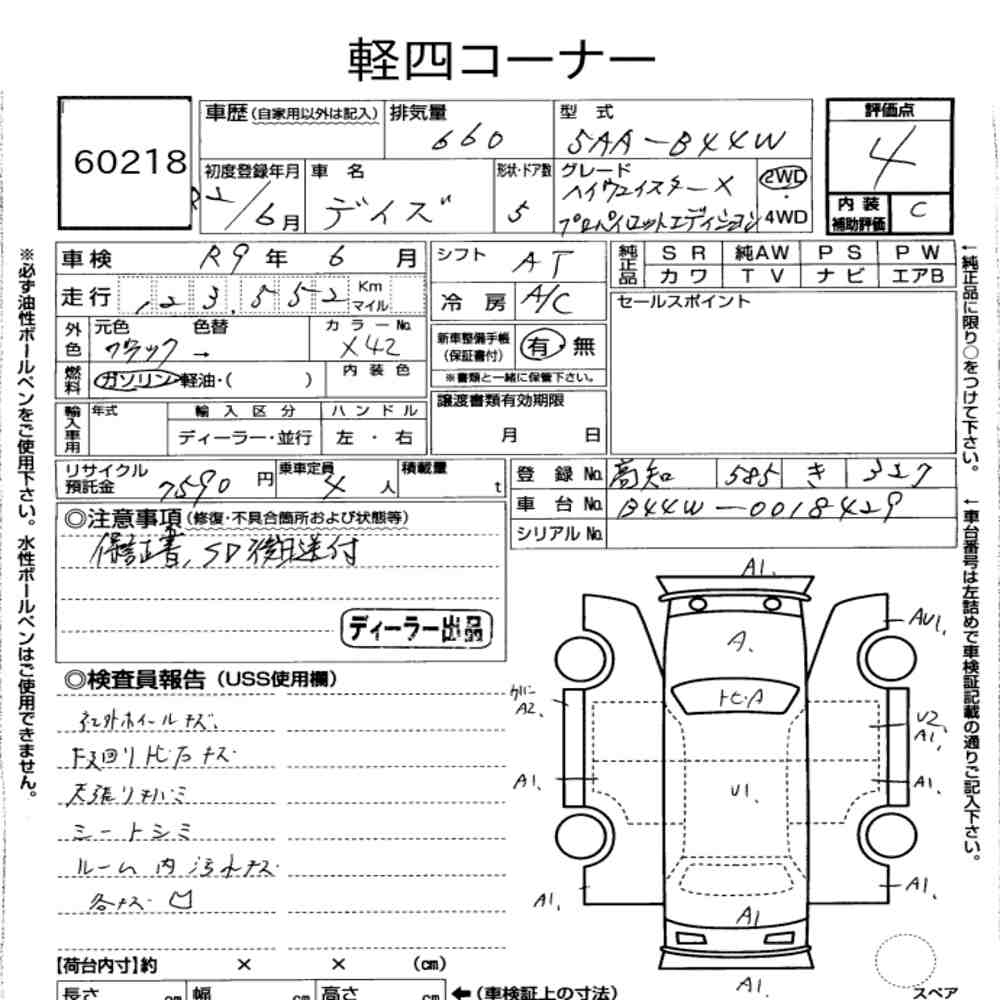 軽四コーナー
60218
車歴(自家用以外は記入) 排気量 660 型式 5AA-B44W
評価点 4
初度登録年月 R2/6月 車名 デイズ 形状・ドア数 5 グレード ハイウェイスターX プロパイロットエディション 2WD 4WD
内装補助評価 C
車検 R9年 6月
走行 123,552 Km マイル
外色 元色 ブラック 色替 → カラーNo. X42
燃料 ガソリン・軽油・( ) 内装色
輸入車用 年式 輸入区分 ディーラー・並行 ハンドル 左・右
シフト AT
冷房 A/C
新車整備手帳(保証書付) 有・無
※書類と一緒に保管下さい。
譲渡書類有効期限
月 日
純正品 SR 純AW PS PW
カワ TV ナビ エアB
セールスポイント
リサイクル預託金 7590円 乗車定員 4人 積載量 t
登録No. 高知 585 き 327
車台No. B44W-0018429
シリアルNo.
◎注意事項(修復・不具合箇所および状態等)
保証書、SD後日送付
ディーラー出品
◎検査員報告(USS使用欄)
社外ホイールキズ、
下回りサビ
天張り
シートシミ
ルーム内汚れキズ
各キズ 凹
A1.
AU1.
A.
A2.
U2
A1.
A1.
U1.
A1.
A1.
A1.
A1
A1.
【荷台内寸】約 × × (cm)
長さ cm 幅 cm 高さ cm ←(車検証上の寸法)
スペア
※必ず油性ボールペンをご使用下さい。水性ボールペンはご使用できません。
←純正品に限り○をつけて下さい。
←車台番号は左詰めで車検証記載の通りご記入下さい。